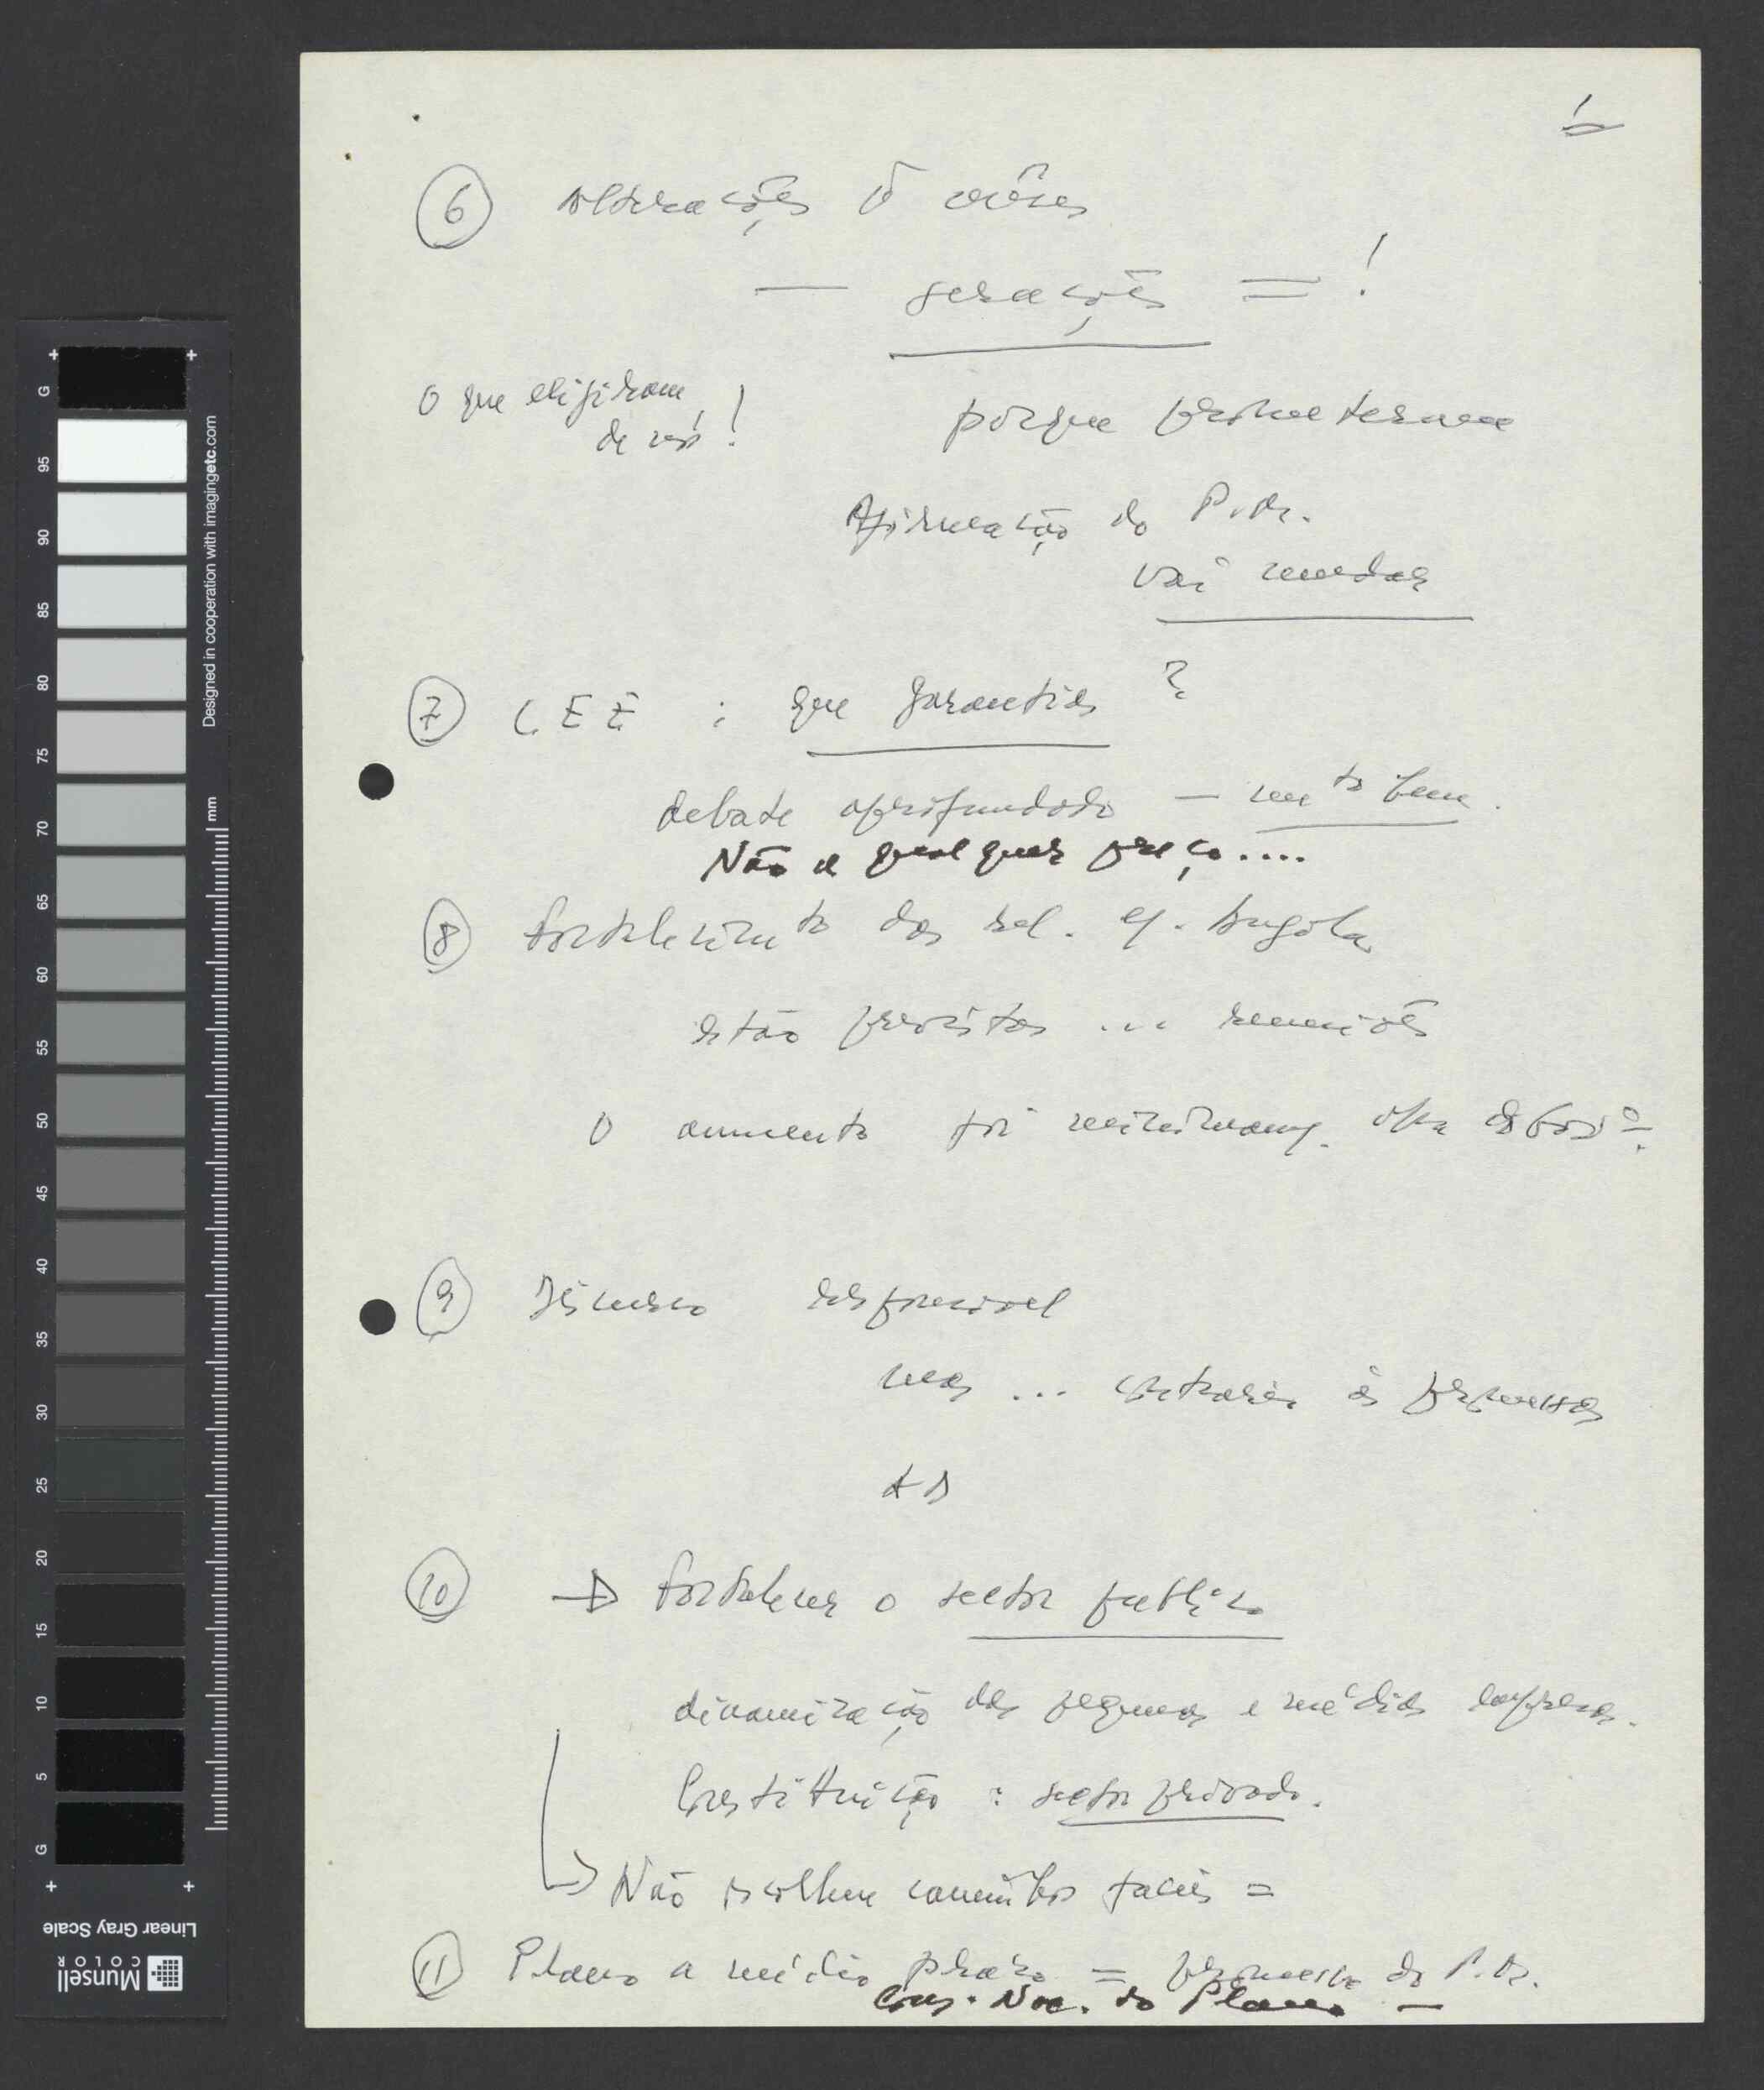 6
gerações = !
O que exigiram
de nós!
porque prometeram
Afirmação do P.M.
vai mudar
7 CEE : que garantias ?
debate aprofundado — mto bem.
Não a qualquer preço....
8 Fortalecimto das rel. c/. Angola
estão previstas ... reuniões
O aumento foi
9 Discurso responsável
mas ... contraria as promessas
AD
10 → Fortalecer o sector público
dinamização das pequenas e médias empresas.
Constituição : sector privado.
→ Não escolheu caminhos fáceis =
11 Plano a médio prazo = promessa do P.M.
Cons. Nac. do Plano —
G
95
90
85
80
75
70
65
60
55
50
45
40
35
30
25
20
15
10
5
G
Designed in cooperation with imagingetc.com
mm
Linear Gray Scale
Munsell
COLOR